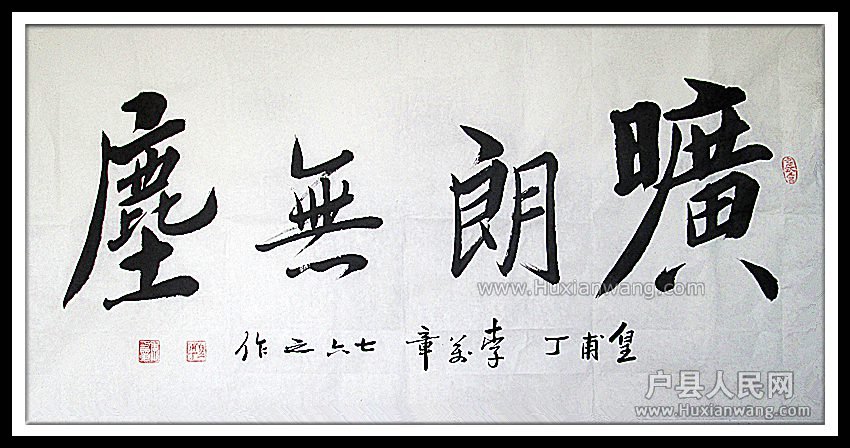 曠朗無塵
皇甫丁李章七六之作
www.Huxianwang.com
户县人民网
www.Huxianwang.com